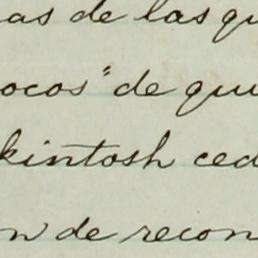 as de las qu
ocos" de qui
kintosh ced
n de recon